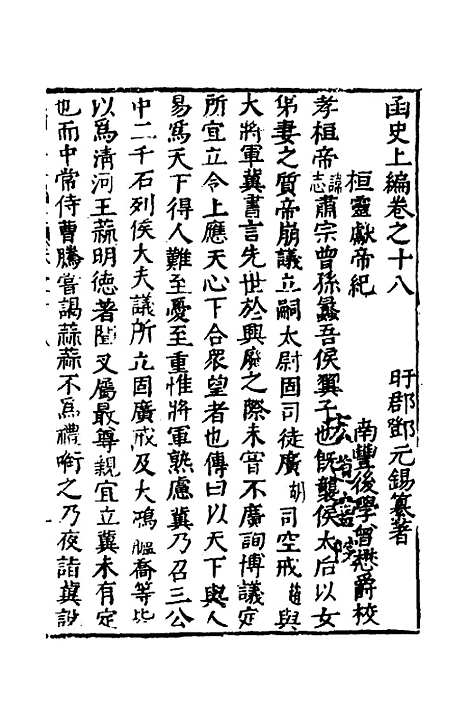 函史上編卷之十八
盱郡鄧元錫纂著
桓靈獻帝紀
南豐後學曾懋爵校
孝桓帝諱志肅宗曾孫蠡吾侯翼子也旣襲侯太后以女
弟妻之質帝崩議立嗣太尉固司徒廣胡司空戒趙與
大將軍冀書言先世於興廢之際未甞不廣詢博議定
所宜立令上應天心下合衆望者也傳曰以天下與人
易爲天下得人難至憂至重惟將軍熟慮冀乃召三公
中二千石列侯大夫議所立固廣戒及大鴻臚喬等皆
以爲清河王蒜明德著聞又屬最尊親宜立冀未有定
也而中常侍曹騰甞謁蒜蒜不爲禮啣之乃夜詣冀說